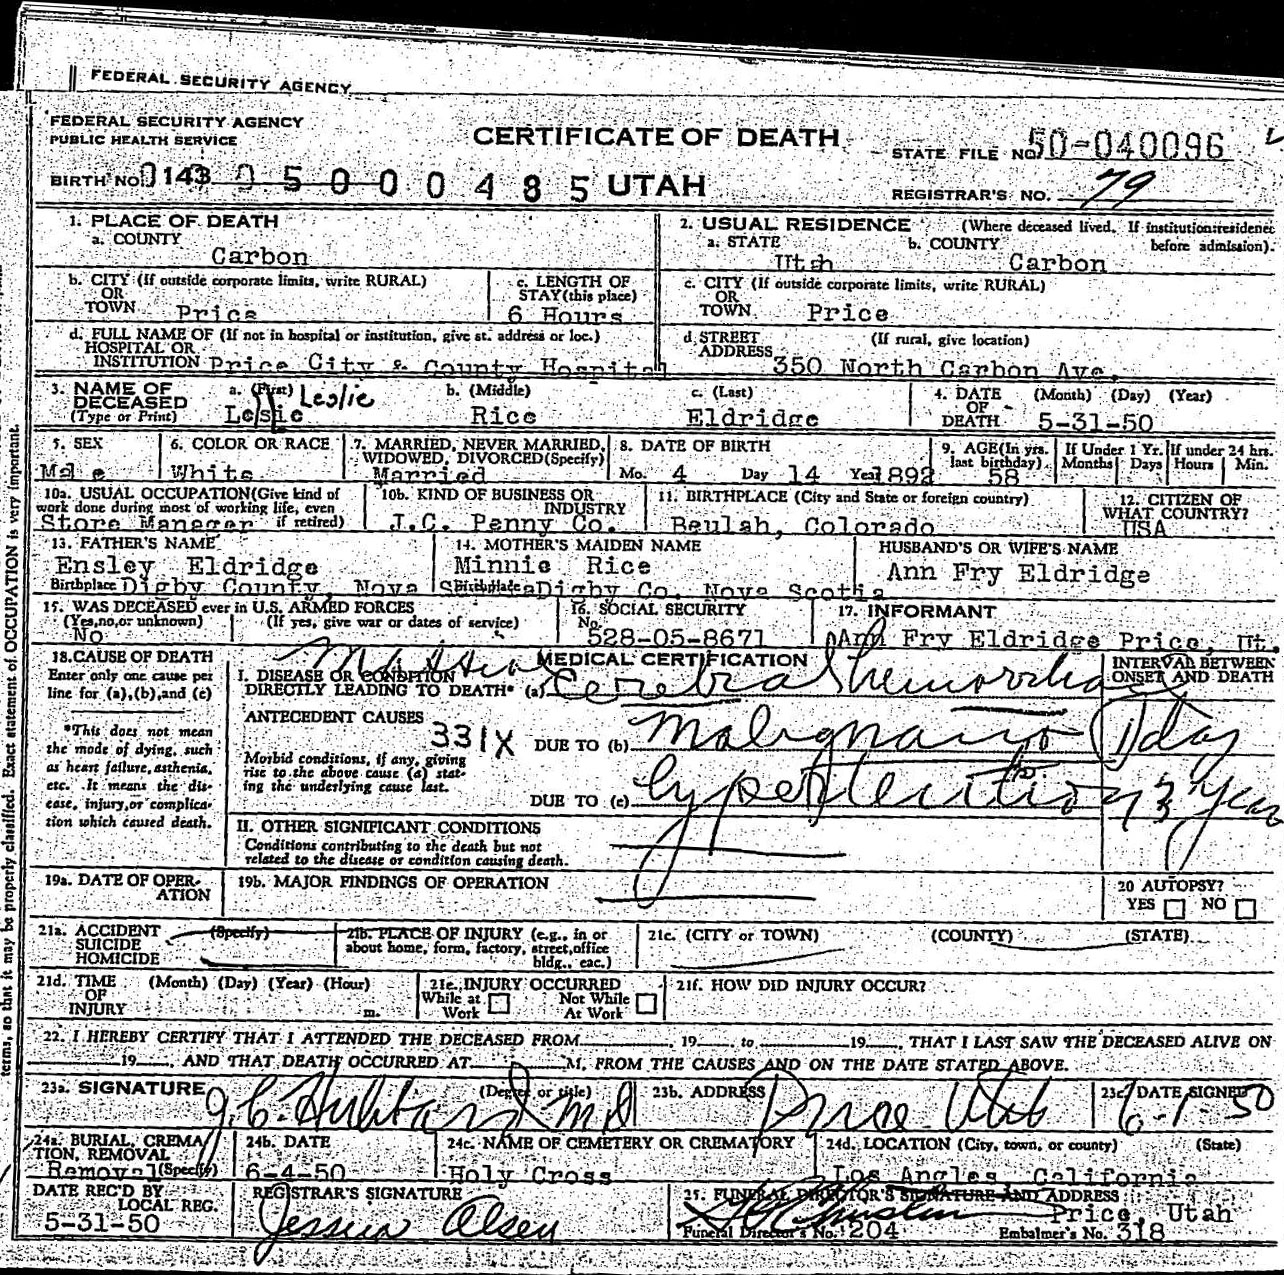 FEDERAL SECURITY AGENCY
FEDERAL SECURITY AGENCY
PUBLIC HEALTH SERVICE
CERTIFICATE OF DEATH
STATE FILE NO. 50-040096
BIRTH NO. 0143 0 5 0 0 0 4 8 5 UTAH
REGISTRAR'S NO. 79
1. PLACE OF DEATH
a. COUNTY
Carbon
2. USUAL RESIDENCE (Where deceased lived. If institution: residence before admission).
a. STATE Utah b. COUNTY Carbon
b. CITY (If outside corporate limits, write RURAL)
OR
TOWN Price
c. LENGTH OF
STAY (this place)
6 Hours
c. CITY (If outside corporate limits, write RURAL)
OR
TOWN Price
d. FULL NAME OF (If not in hospital or institution, give st. address or loc.)
HOSPITAL OR
INSTITUTION Price City & County Hospital
d. STREET (If rural, give location)
ADDRESS 350 North Carbon Ave.
3. NAME OF
DECEASED
(Type or Print)
a. (First) Leslie
Leslie
b. (Middle)
Rice
c. (Last)
Eldridge
4. DATE (Month) (Day) (Year)
OF
DEATH 5-31-50
5. SEX
Male
6. COLOR OR RACE
White
7. MARRIED, NEVER MARRIED,
WIDOWED, DIVORCED (Specify)
Married
8. DATE OF BIRTH
Mo. 4 Day 14 Year 1892
9. AGE (In yrs.
last birthday)
58
If Under 1 Yr.
Months Days
If under 24 hrs.
Hours Min.
10a. USUAL OCCUPATION (Give kind of
work done during most of working life, even
if retired)
Store Manager
10b. KIND OF BUSINESS OR
INDUSTRY
J.C. Penny Co.
11. BIRTHPLACE (City and State or foreign country)
Beulah, Colorado
12. CITIZEN OF
WHAT COUNTRY?
USA
13. FATHER'S NAME
Ensley Eldridge
Birthplace Digby County, Nova S
14. MOTHER'S MAIDEN NAME
Minnie Rice
Birthplace Digby Co. Nova Scotia
HUSBAND'S OR WIFE'S NAME
Ann Fry Eldridge
15. WAS DECEASED ever in U.S. ARMED FORCES
(Yes, no, or unknown) (If yes, give war or dates of service)
No
16. SOCIAL SECURITY
No.
528-05-8671
17. INFORMANT
Ann Fry Eldridge Price, Ut.
18. CAUSE OF DEATH
Enter only one cause per
line for (a), (b), and (c)
*This does not mean
the mode of dying, such
as heart failure, asthenia,
etc. It means the dis-
ease, injury, or complica-
tion which caused death.
MEDICAL CERTIFICATION
I. DISEASE OR CONDITION
DIRECTLY LEADING TO DEATH* (a) Cerebral hemorrhage
INTERVAL BETWEEN
ONSET AND DEATH
ANTECEDENT CAUSES
331X
Morbid conditions, if any, giving
rise to the above cause (a) stat-
ing the underlying cause last.
DUE TO (b) Malignant 1 day
DUE TO (c) hypertension 3 years
II. OTHER SIGNIFICANT CONDITIONS
Conditions contributing to the death but not
related to the disease or condition causing death.
19a. DATE OF OPER-
ATION
19b. MAJOR FINDINGS OF OPERATION
20 AUTOPSY?
YES NO
21a. ACCIDENT (Specify)
SUICIDE
HOMICIDE
21b. PLACE OF INJURY (e.g., in or
about home, form, factory, street, office
bldg., eac.)
21c. (CITY or TOWN) (COUNTY) (STATE)
21d. TIME (Month) (Day) (Year) (Hour)
OF
INJURY m.
21e. INJURY OCCURRED
While at Work Not While At Work
21f. HOW DID INJURY OCCUR?
22. I HEREBY CERTIFY THAT I ATTENDED THE DECEASED FROM , 19 , to 19 , THAT I LAST SAW THE DECEASED ALIVE ON
19 , AND THAT DEATH OCCURRED AT M. FROM THE CAUSES AND ON THE DATE STATED ABOVE.
23a. SIGNATURE (Degree or title)
J.C. Hubbard MD
23b. ADDRESS
Price Utah
23c. DATE SIGNED
6-1-50
24a. BURIAL, CREMA
TION, REMOVAL
Removal (Specify)
24b. DATE
6-4-50
24c. NAME OF CEMETERY OR CREMATORY
Holy Cross
24d. LOCATION (City, town, or county) (State)
Los Angles, California
DATE REC'D BY
LOCAL REG.
5-31-50
REGISTRAR'S SIGNATURE
Jessie Olsen
25. FUNERAL DIRECTOR'S SIGNATURE AND ADDRESS
Price, Utah
Funeral Director's No. 204 Embalmer's No. 318
terms, so that it may be properly classified. Exact statement of OCCUPATION is very important.